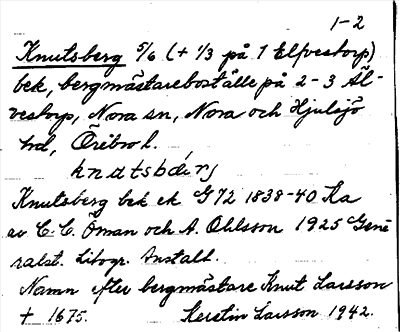 1-2
Knutsberg 5/6 (+ 1/3 på 1 Elfvestorp)
bek, bergmästareboställe på 2-3 Äl-
vestorp, Nora sn, Nora och Hjulsjö
hd, Örebro l.
knutsbärj
Knutsberg bek ek G72 1838-40 Ka
av C. C. Öman och A. Ohlsson 1925 Gene
ralst. Litogr. Anstalt.
Namn efter bergmästare Knut Larsson
† 1675. Kerstin Larsson 1942.